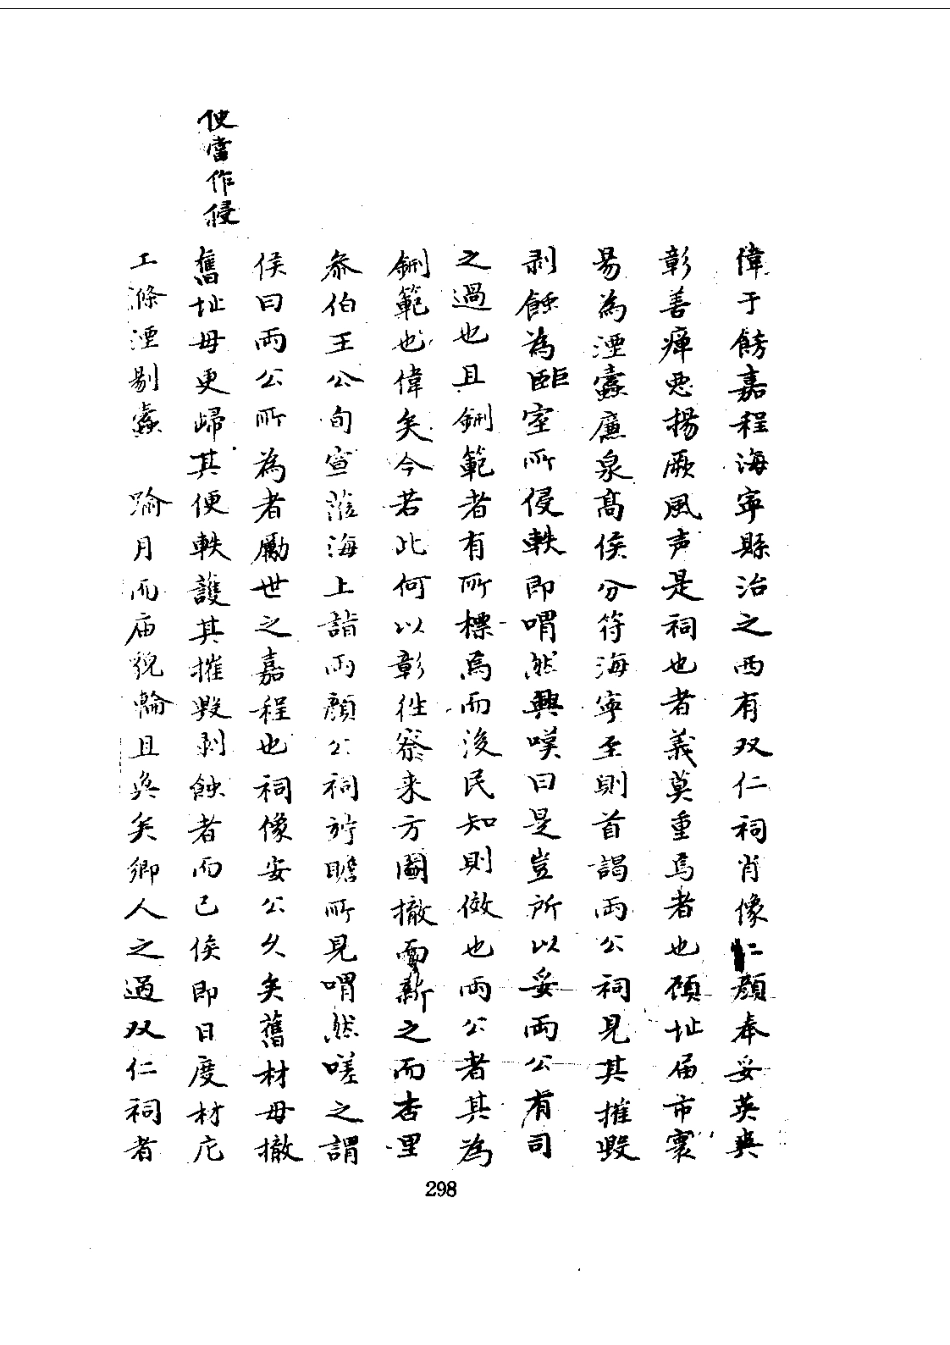 偉于餝嘉程海寧縣治之西有双仁祠肖像仁顔奉妥英爽
彰善癉惡揚厥風声是祠也者義莫重焉者也頋址届市寰
易為湮蠹廉泉髙侯分符海寧至則首謁兩公祠見其摧毀
剥蝕為臨室所侵軼即喟然興嘆曰是豈所以妥兩公有司
之過也且鉶範者有所標焉而後民知則傚也兩公者其為
鉶範也偉矣今若此何以彰徃察来方圖撤而新之而杏里
叅伯王公旬宣蒞海上詣兩顔公祠訡瞻所見喟然嗟之謂
侯曰兩公所為者勵世之嘉程也祠像安公乆矣舊材毋撤
舊址毋更歸其便軼護其摧毀剥蝕者而已侯即日度材庀
工滌湮剔蠹 踰月而庙貌輪且奐矣鄉人之過双仁祠者
便當作侵
298